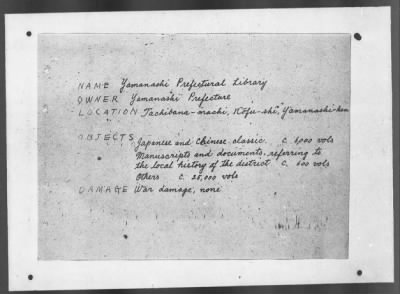 NAME Yamanashi Prefectural Library
OWNER Yamanashi Prefecture
LOCATION Tachibana-machi, Kôfu-shi, Yamanashi-ken
OBJECTS
Japanese and Chinese classic. c. 6,000 vols
Manuscripts and documents, referring to
the local history of the district c. 600 vols
Others c. 25,000 vols
DAMAGE War damage, none